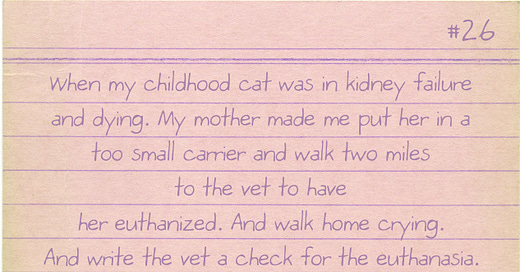 #26
When my childhood cat was in kidney failure
and dying. My mother made me put her in a
too small carrier and walk two miles
to the vet to have
her euthanized. And walk home crying.
And write the vet a check for the euthanasia.